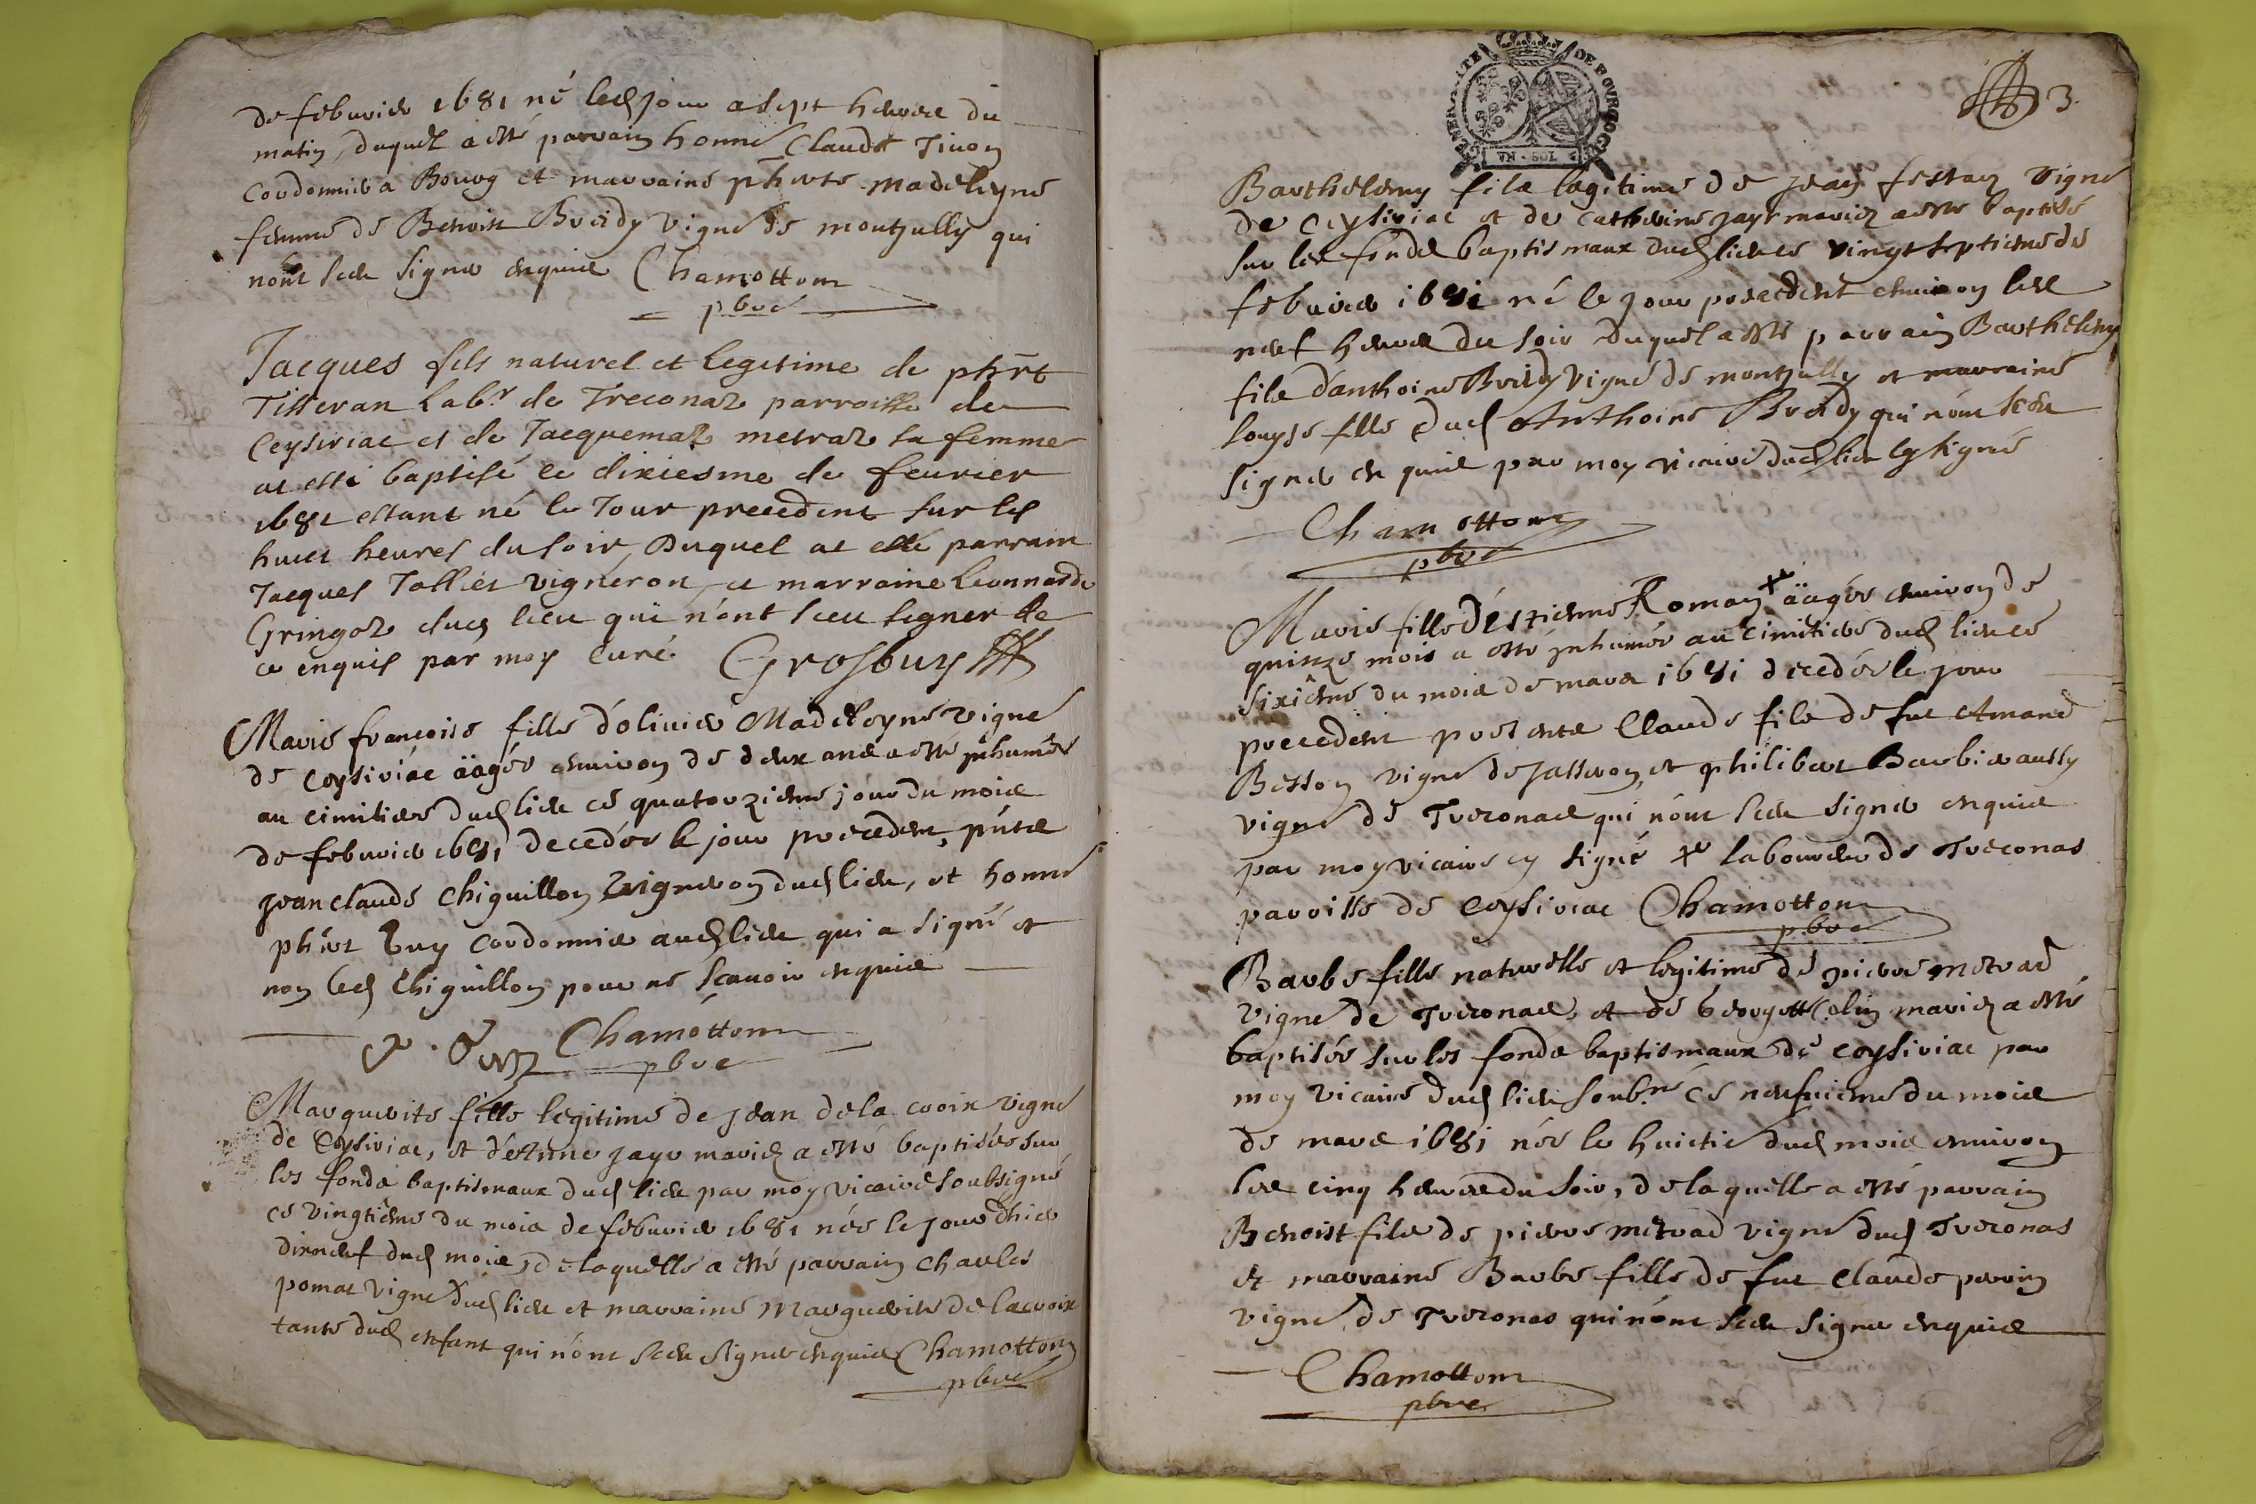 de febuvier 1681 né led jour a sept heures du
matin, duquel a esté parrain honne Claude Tiuon
Cordonnier a Bourg et marraine phlrte madeleyne
femme de Benoist Breidy vigne de montjully qui
n'ont sceu signer enquis Chamottom
pbre
Jacques fils naturel et legitime de phrt
Tisseran Labr de Treconaz parroisse de
Ceysiriac et de Jacquemaz metraz sa femme
at esté baptisé le dixiesme de feurier
1681 estant né le Jour precedent sur les
huict heures du soir, Duquel at esté parrain
Jacques Tallier vigneron, et marraine Leonnarde
Gringoz dud lieu qui n'ont sceu signer de
ce enquis par moy curé Grosbuys
Marie françoise fille d'olivier Madeleyne vigne
de ceysiriac äagée enuiron de deux ans a esté inhumée
au cimitiere dud lieu ce quatorzieme jour du mois
de febuvier 1681 decedée le jour precedent, pnts
jean claude Chiguillon vigneron dud lieu, et honne
phlrt Cordonnier aud lieu qui a signé et
non led Chiguillon pour ne scauoir enquis
Chamottom
pbre
Marguerite fille legitime de Jean de la croix vigne
de Ceysiriac, et d'Anne Jayr mariez a esté baptisée sur
les fonds baptismaux dud lieu par moy vicaire soubsigné
ce vingtiême du mois de febuvier 1681 née le jour d'hier
dixneuf dud mois, de laquelle a esté parrain charles
pomat vigne dud lieu et marraine Marguerite de lacroix
tante dud enfant qui n'ont sceu signer enquis Chamottom
pbre
GENERALITE DE BOURGOGNE
VN · SOL
3.
Barthelemy fils legitime de Jean festaz vigne
de Ceysiriac et de Catherine Jayr mariez a esté baptisé
sur les fonds baptismaux dud lieu ce vingt septieme de
febuvier 1681 né le jour precedent enuiron les
neuf heures du soir duquel a esté parrain Barthelemy
fils d'anthoine Breidy vigne de montjully et marraine
Louyse fille dud Anthoine Breidy qui n'ont sceu
signer enquis par moy vicaire dud lieu cy signé
Chamottom
pbre
Marie fille d'Estienne Roman äagée enuiron de
quinze mois a esté inhumée au cimitiere dud lieu ce
sixiême du mois de mars 1681 decedée le jour
precedent presents Claude fils de fut Amand
Besson vigne de Jasseron, et philibert Barbier aussy
vigne de Treconas qui n'ont sceu signer enquis
par moy vicaire cy signé laboureur de Treconas
parroisse de ceysiriac Chamottom
pbre
Barbe fille naturelle et legitime de pierre metrad
vigne de Treconas, et de Colin mariez a esté
baptisée sur les fonds baptismaux de ceysiriac par
moy vicaire dud lieu soubne ce neufuieme du mois
de mars 1681 née le huictie dud mois enuiron
les cinq heures du soir, de laquelle a esté parrain
Benoist fils de pierre metrad vigne dud Treconas
et marraine Barbe fille de fut claude perrin
vigne de Treconas qui n'ont sceu signer enquis
Chamottom
pbre